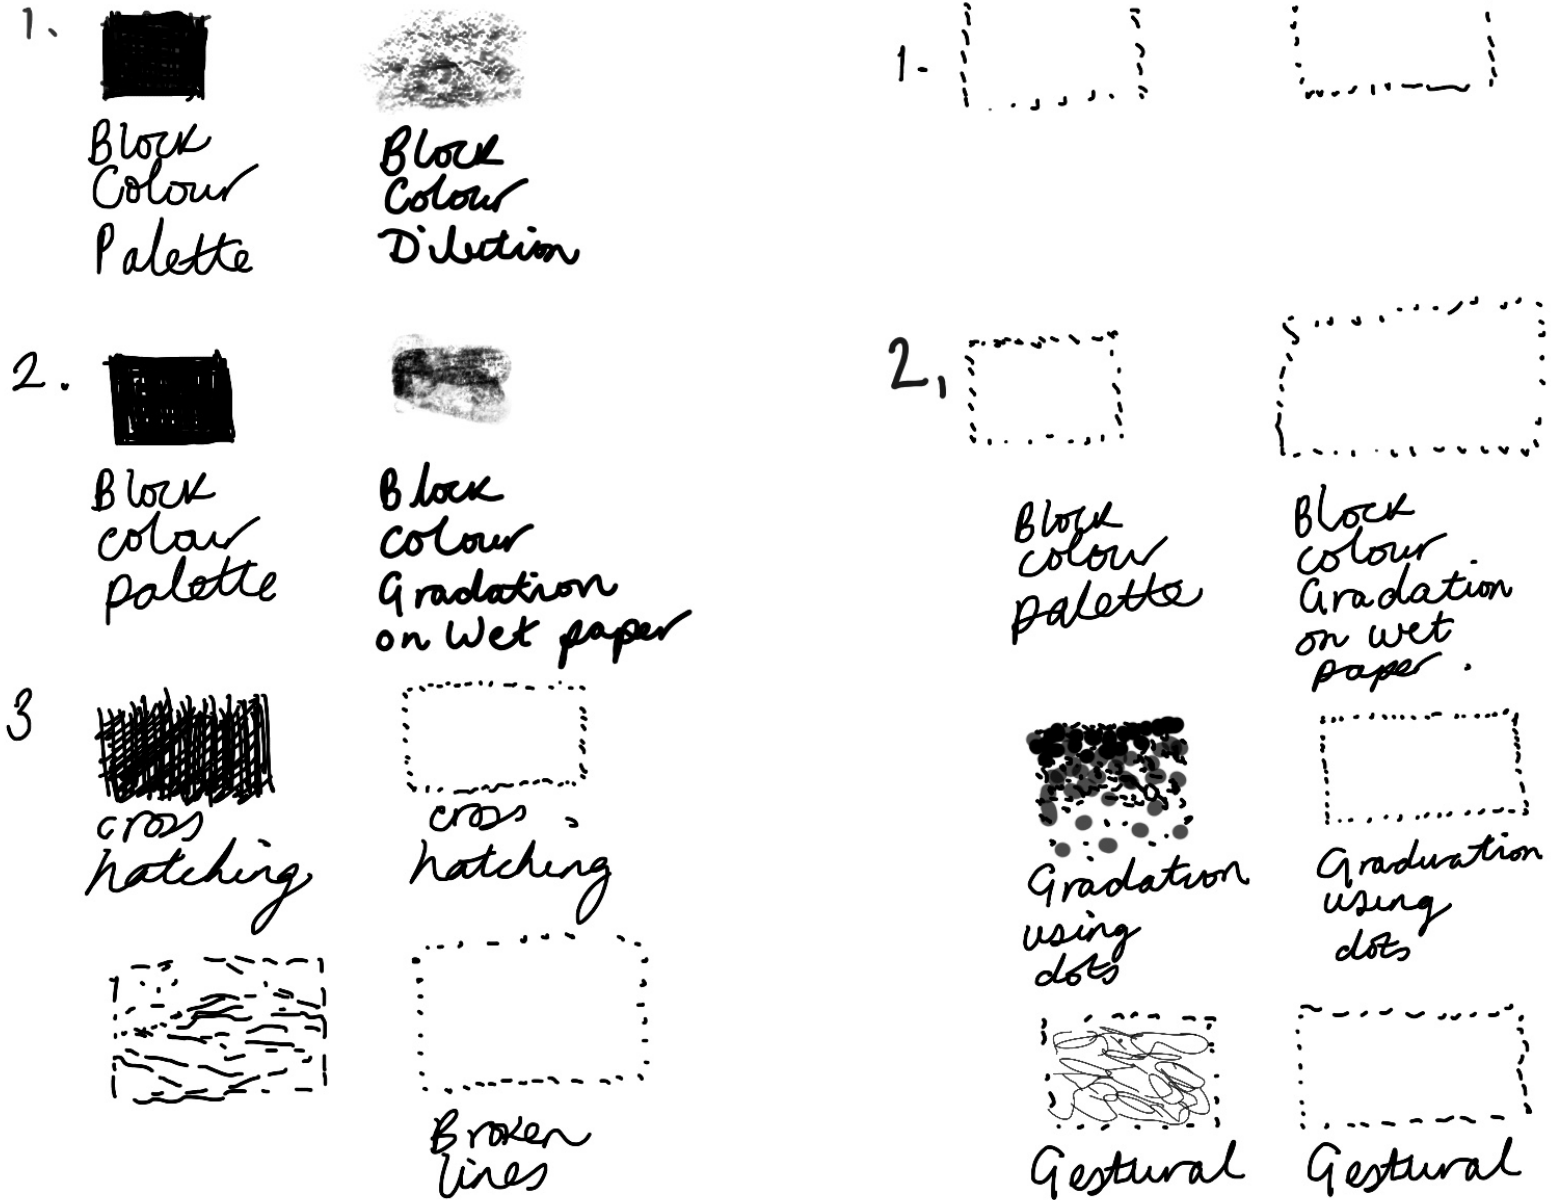 1.
Block
Colour
Palette
Block
Colour
Dilution
2.
Block
colour
palette
Block
colour
Gradation
on wet paper
3
cross
hatching
cross
hatching
Broken
lines
1.
2,
Block
colour
palette
Block
colour
Gradation
on wet
paper.
Gradation
using
dots
Graduation
using
dots
Gestural
Gestural